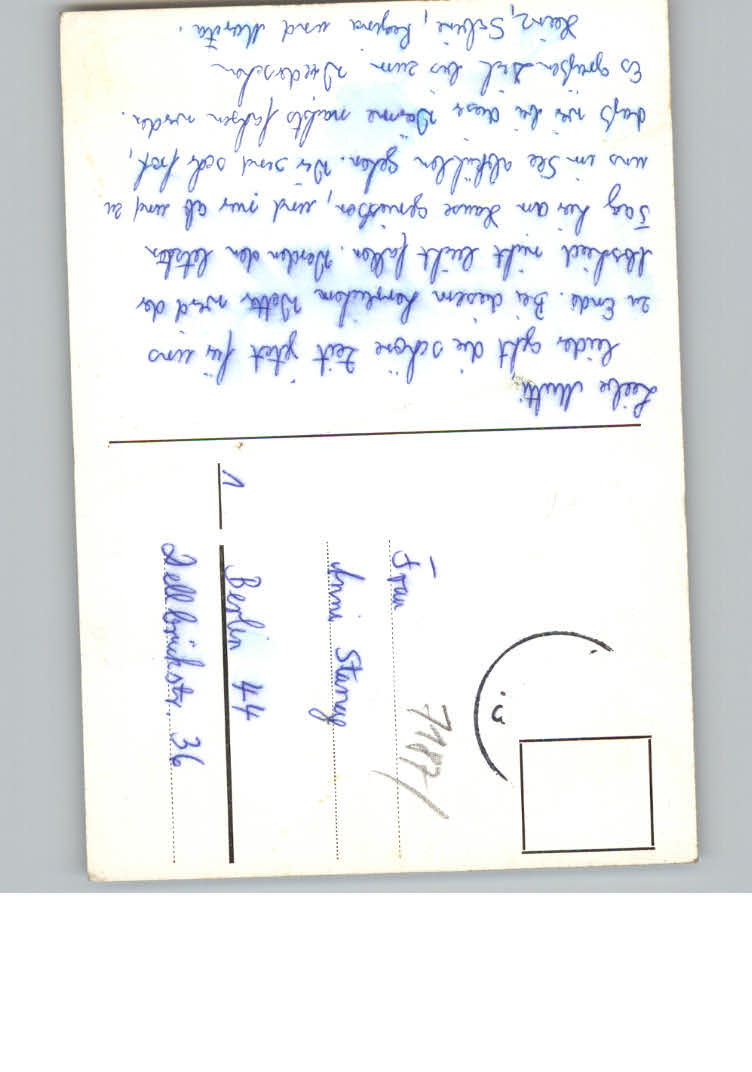 Liebe Mutti,
leider geht die schöne Zeit jetzt für uns
zu Ende. Bei diesem herrlichem Wetter wird der
Abschied nicht leicht fallen. Werden den letzten
Tag hier am Hause geniessen, und nur ab und zu
uns im See abkühlen gehen. Wir sind sehr froh,
daß wir bei dieser Wärme nachts fahren werden.
Es grüßen Dich bis zum Wiedersehen
Heinz, Sabine, Regina und Marita.
Frau
Anni Stange
1 Berlin 44
Dellbrückstr. 36
7187/